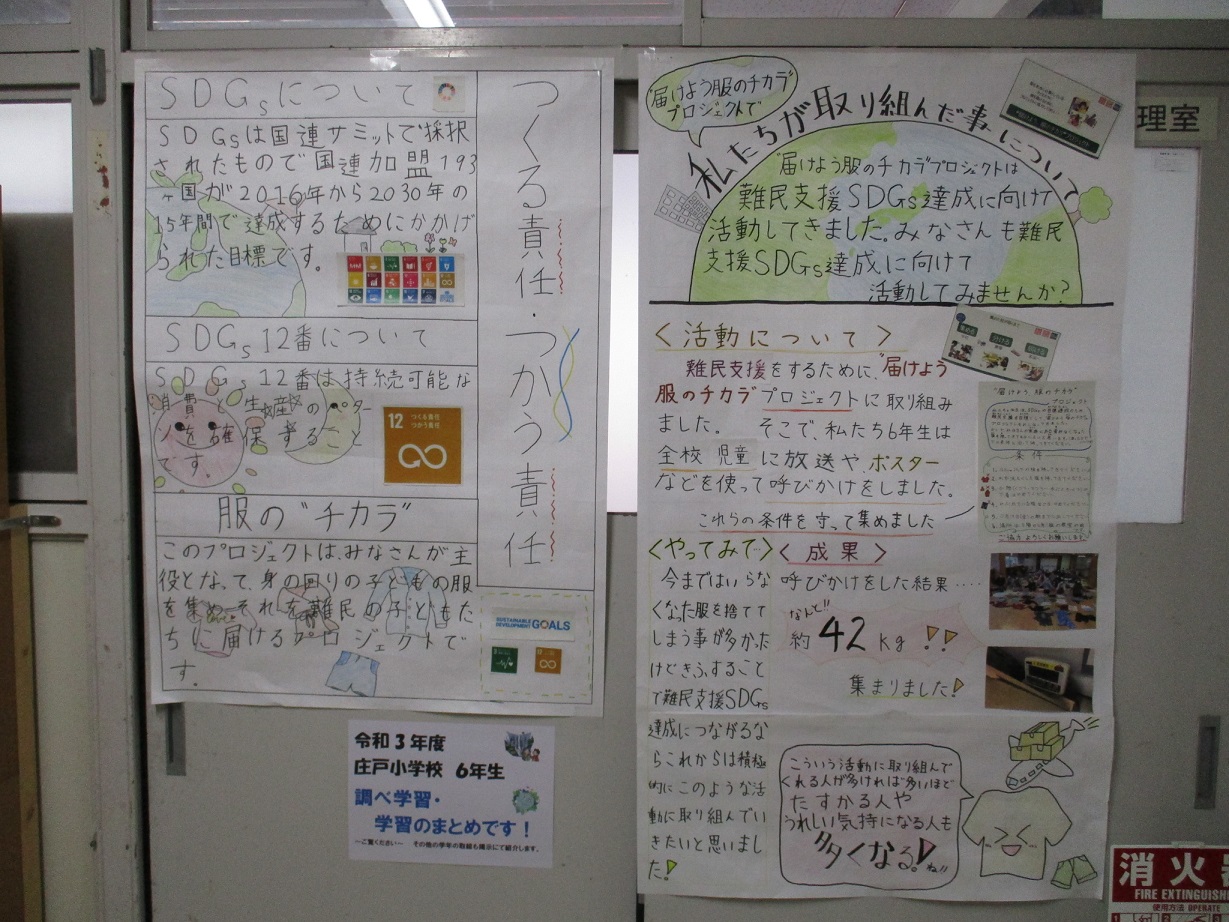 つくる責任・つかう責任
SDGsについて
SDGsは国連サミットで採択
されたもので国連加盟193
ヶ国が2016年から2030年の
15年間で達成するためにかかげ
られた目標です。
SDGs12番について
SDGs12番は持続可能な
消費と生産のパター
ンを確保すること
です。
12 つくる責任
つかう責任
服の"チカラ"
このプロジェクトは、みなさんが主
役となって、身の回りの子どもの服
を集め、それを難民の子どもた
ちに届けるプロジェクトで
す。
SUSTAINABLE
DEVELOPMENT GOALS
令和3年度
庄戸小学校 6年生
調べ学習・
学習のまとめです!
~ご覧ください~ その他の学年の取組も掲示にて紹介します。
"届けよう服のチカラ"
プロジェクトで
私たちが取り組んだ事について
"届けよう服のチカラ"プロジェクトは
難民支援SDGs達成に向けて
活動してきました。みなさんも難民
支援SDGs達成に向けて
活動してみませんか?
<活動について>
難民支援をするために、"届けよう
服のチカラ"プロジェクトに取り組み
ました。 そこで、私たち6年生は
全校児童に放送や、ポスター
などを使って呼びかけをしました。
これらの条件を守って集めました
"届けよう 服のチカラ"
プロジェクト
条件
<やってみて>
今まではいらな
くなった服を捨てて
しまう事が多かった
けどきふすること
で難民支援SDGs
達成につながるな
らこれからは積極
的にこのような活
動に取り組んでい
きたいと思いまし
た!
<成果>
呼びかけをした結果‥‥
なんと!!
約42kg!!
集まりました!
こういう活動に取り組んで
くれる人が多ければ多いほど
たすかる人や
うれしい気持になる人も
多くなる!ね!!
理室
消火
FIRE EXTINGUISHER
使用方法 OPERATE